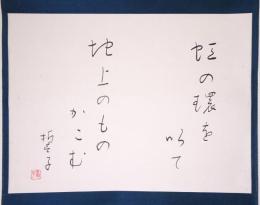 虹の環を
以て
地上のもの
かこむ
哲子